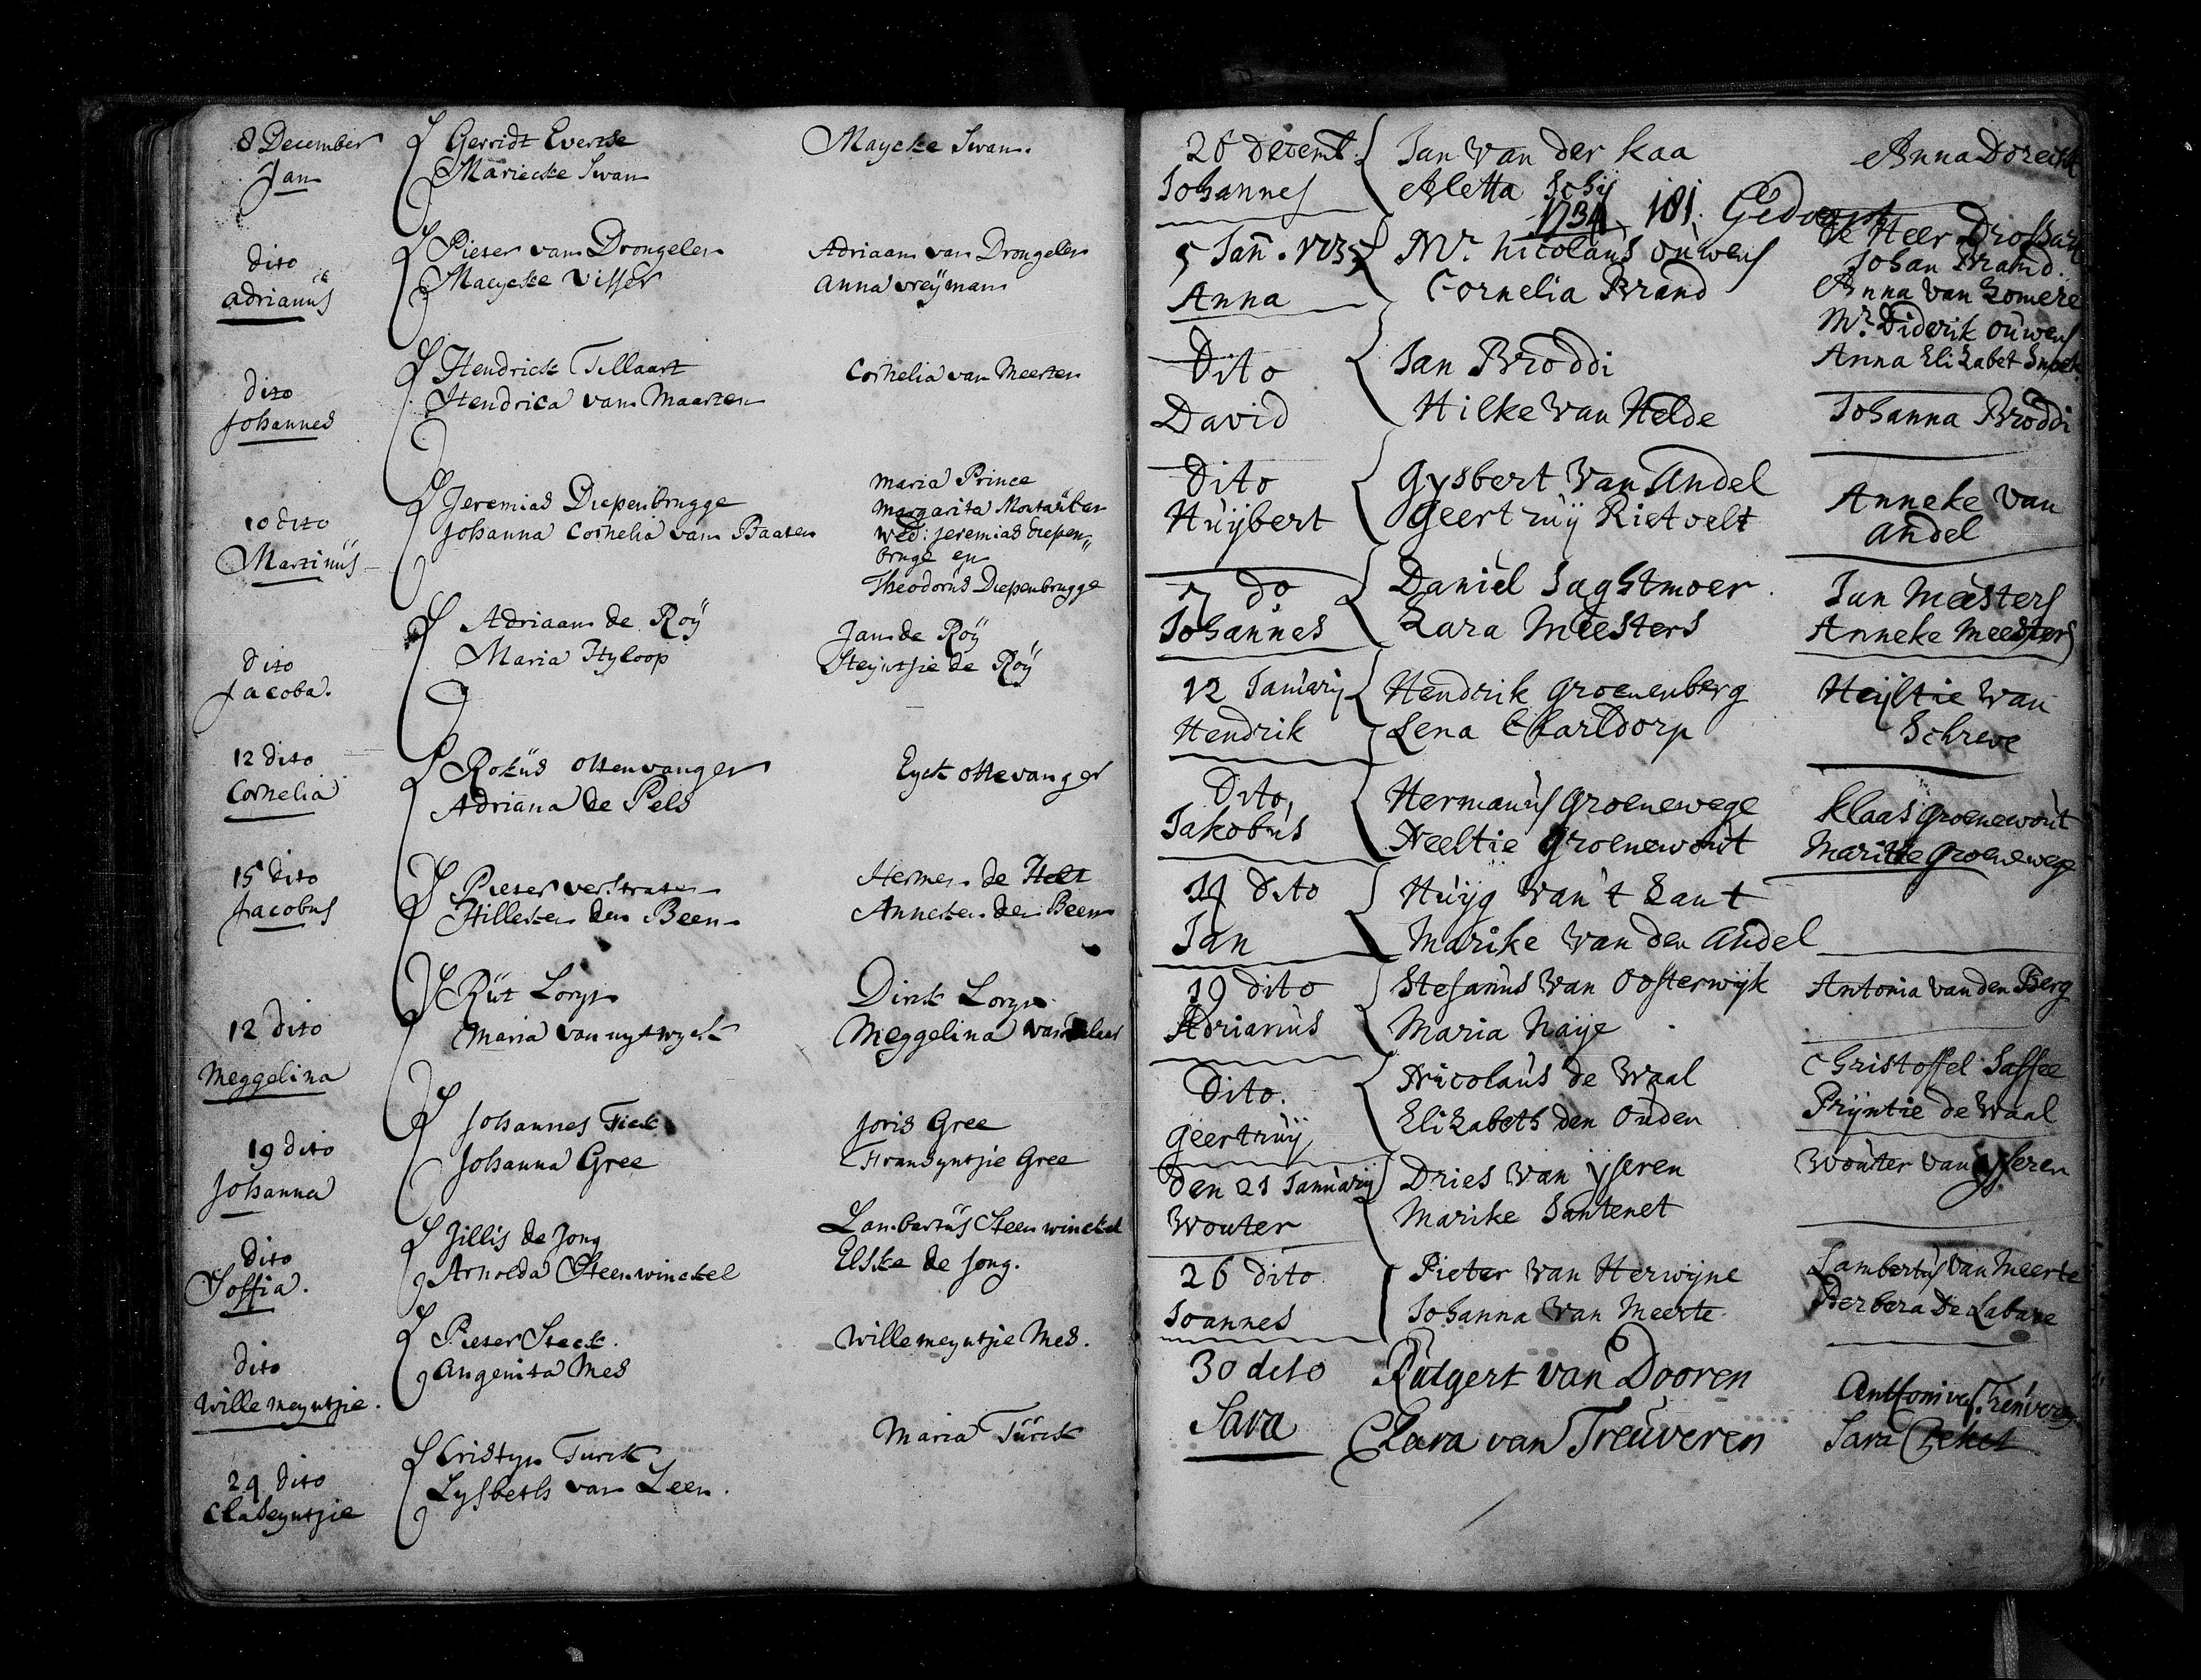 8 December
Jan
Gerridt Everse
Mariecke Swan
Maycke Swan.
dito
adrianus
Pieter van Drongelen
Maeycke Visser
Adriaan van Drongelen
Anna vreyman
dito
Johannes
Hendrick Tillaart
Hendrica van Maarten
Cornelia van Meerten
10 dito
Martinus
Jeremias Diepenbrugge
Johanna Cornelia van Baaten
Maria Prince
Margarita Montauban
wed: jeremias diepen„
bruge en
Theodorus Diepenbrugge
dito
Jacoba.
Adriaan de Roÿ
Maria Hyloop
Jan de Roÿ
Steyntjie de Roÿ
12 dito
Cornelia
Rokus ottenvanger
Adriana de Pels
Eyck ottevanger
15 dito
Jacobus
Pieter verstraten
Hilleken den Been
Hermen de Helt
Anneken den Been
12 dito
Meggelina
Rut Loryn
Maria van uytwyck
Dirck Loryn
Meggelina van
19 dito
Johanna
Johannes Fick
Johanna Gree
Joris Gree
Fransyntjie Gree
dito
Soffia.
Jillis de Jong
Arnolda Steenwinckel
Lambartus Steenwinckel
Elske de Jong.
dito
Willemeyntjie.
Pieter Steck.
Angenita Mes
Willemeyntjie Mes.
29 dito
Claseyntjie
Cristyn Turck
Lysbeth van Leen.
Maria Turck
26 decemb.
Johannes
Jan van der Kaa
Aletta Schÿ
Anna Dorecht
1734 181 Gedoopt
5 Jan. 1735
Anna
Mr. Nicolaus ouwens
Cornelia Brand
De Heer Drossart
Johan Brand.
Anna van Zomere
Mr. Diderik ouwens
Anna Elizabet Snoek
Dito
David
Jan Broddi
Hilke van Helde
Johanna Broddi
Dito
Huijbert
Gysbert van Andel
Geertruÿ Rietvelt
Anneke van
Andel
do
Johannes
Daniel Jaghtmoer
Zara Meesters
Jan Meesters
Anneke Meesters
12 Januarij
Hendrik
Hendrik Groenenberg
Lena Charldorp
Heijltie van
Schreve
Dito,
Jakobus
Hermanus Groenewege
Neeltie Groenewout
Klaas Groenewout
Maritie Groenewege
Dito
Jan
Huijg van't Zant
Marike van den Andel
19 dito
Adrianus
Stefanus van Oosterwijk
Maria Naije
Antonia van den Berg
Dito.
Geertruij
Nicolaus de Waal
Elizabeth den Ouden
Christoffel Saffee
Prijntie de Waal
den 21 Januarij
Wouter
Dries van ijseren
Marike Santenet
Wouter van ijseren
26 dito
Joannes
Pieter van Herwijne
Johanna van Meerte
Lambertus van Meerte
Berbera De Labare
30 dito
Sara
Rutgert van Dooren
Clara van Treuveren
Sara